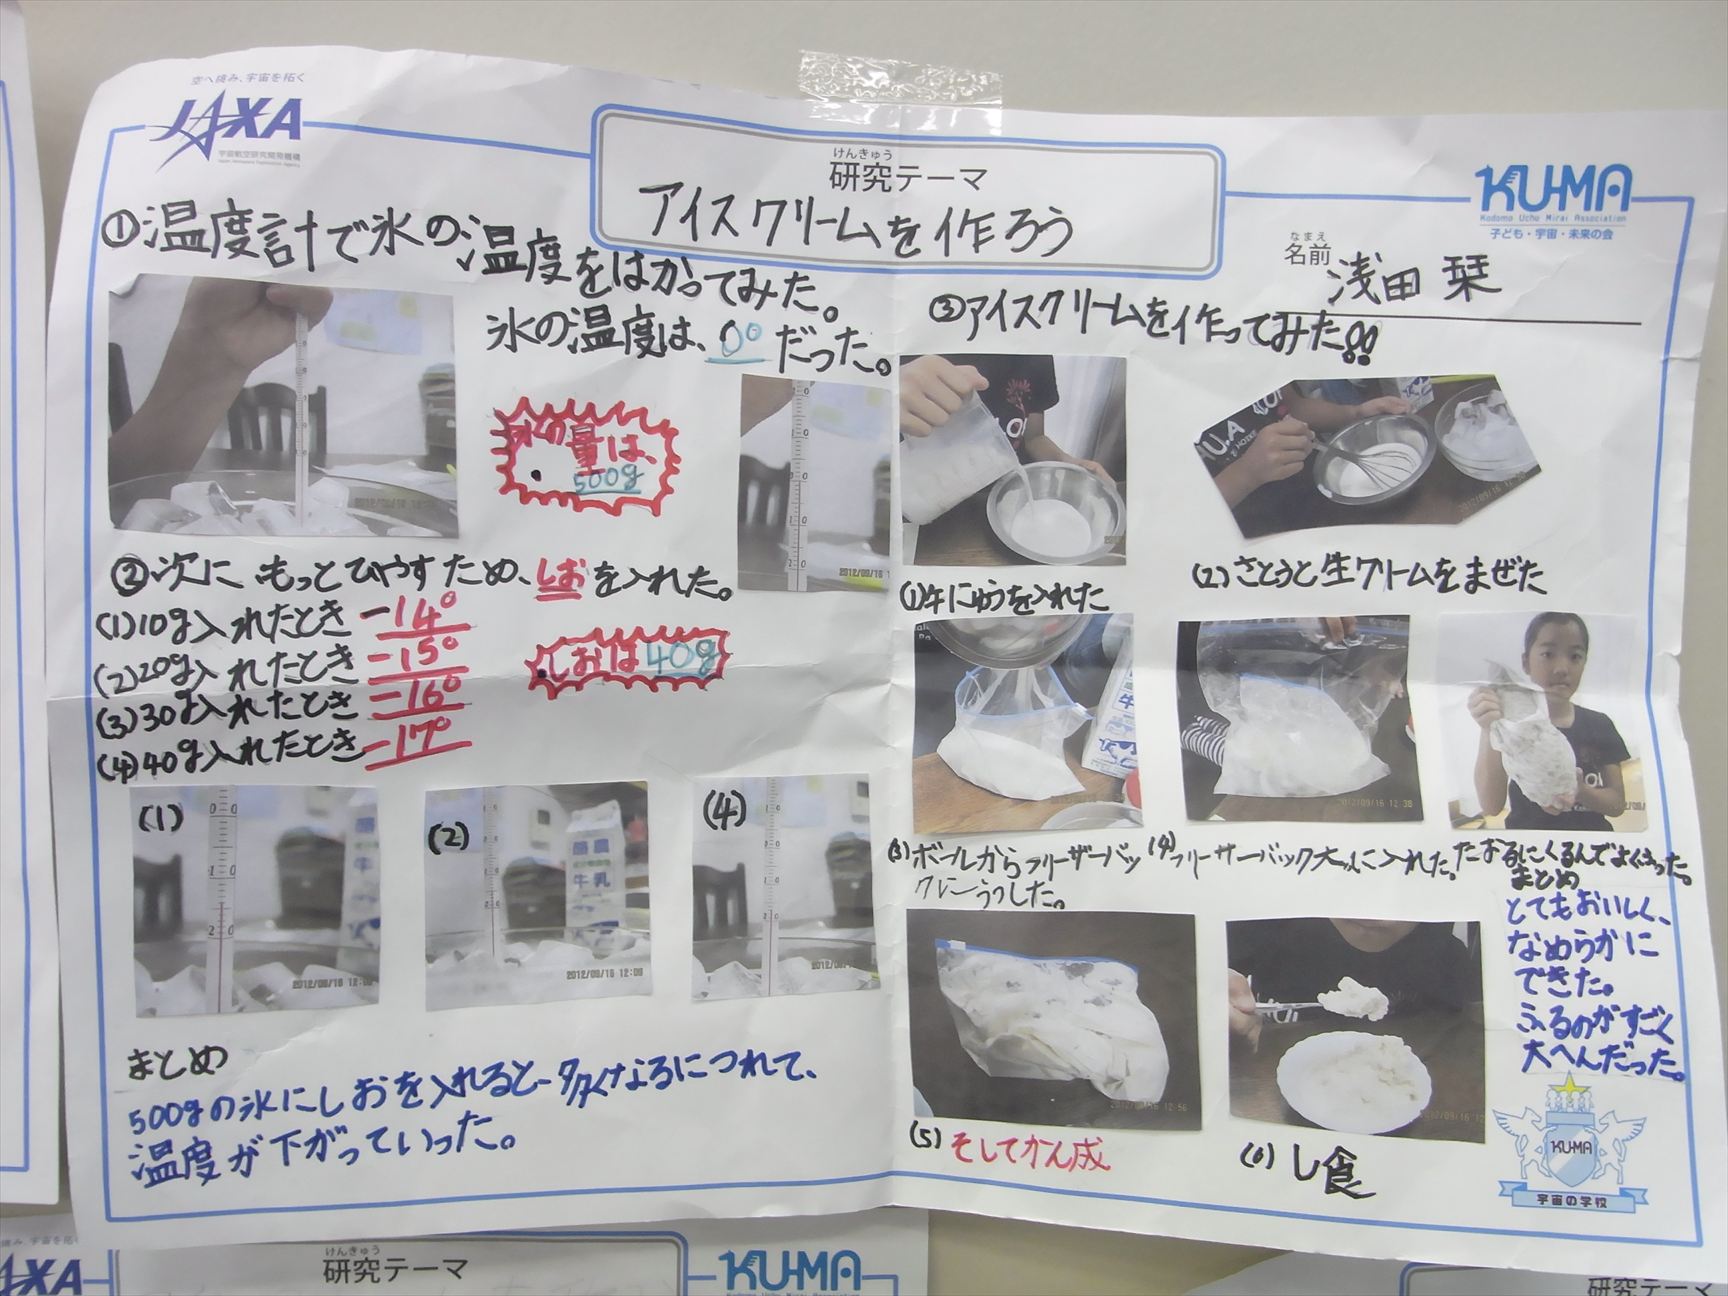 空へ挑み、宇宙を拓く
JAXA
宇宙航空研究開発機構
Japan Aerospace Exploration Agency
けんきゅう
研究テーマ
アイスクリームを作ろう
KU-MA
Kodomo Uchu Mirai Association
子ども・宇宙・未来の会
なまえ
名前
浅田 栞
①温度計で氷の温度をはかってみた。
氷の温度は、0°だった。
氷の量は、
500g
②次に もっとひやすため、しおを入れた。
(1)10g入れたとき -14°
(2)20g入れたとき -15°
(3)30g入れたとき -16°
(4)40g入れたとき -17°
しおは40g
(1)
(2)
(4)
酪農
牛乳
2012/09/16 12:09
まとめ
500gの氷にしおを入れると多くなるにつれて、
温度が下がっていった。
③アイスクリームを作ってみた!!
(1)牛にゅうを入れた
(2)さとうと生クリームをまぜた
2012/09/16 12:38
(3)ボールからフリーザーバッ
クにうつした。
(4)フリーザーバック大に入れた。
たおるにくるんでよくふった。
2012/09/16 12:56
(5)そしてかん成
2012/09/16 12
(6)し食
まとめ
とてもおいしく、
なめらかに
できた。
ふるのがすごく
大へんだった。
KU-MA
宇宙の学校
空へ挑み、宇宙を拓く
AXA
けんきゅう
研究テーマ
KU-MA
Kodomo Uchu Mirai Association
研究テーマ